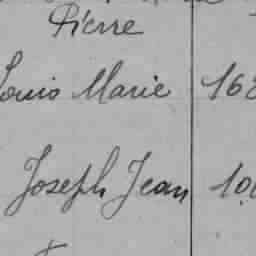 Pierre
Louis Marie 168
Joseph Jean 10